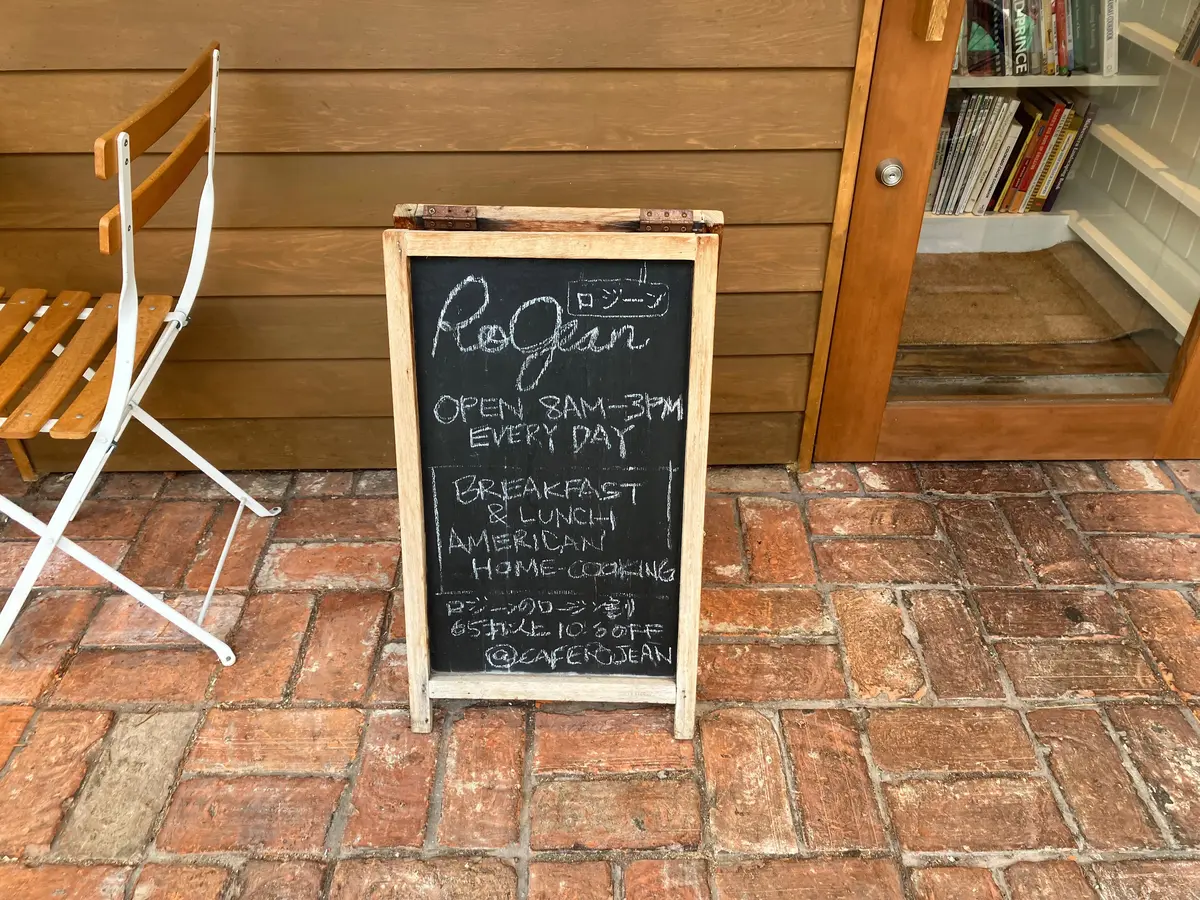 RoJean
ロジーン
OPEN 8AM-3PM
EVERY DAY
BREAKFAST
& LUNCH
AMERICAN
HOME-COOKING
ロジーンのロージン割り
65才以上 10% OFF
@CAFEROJEAN
PRINCE